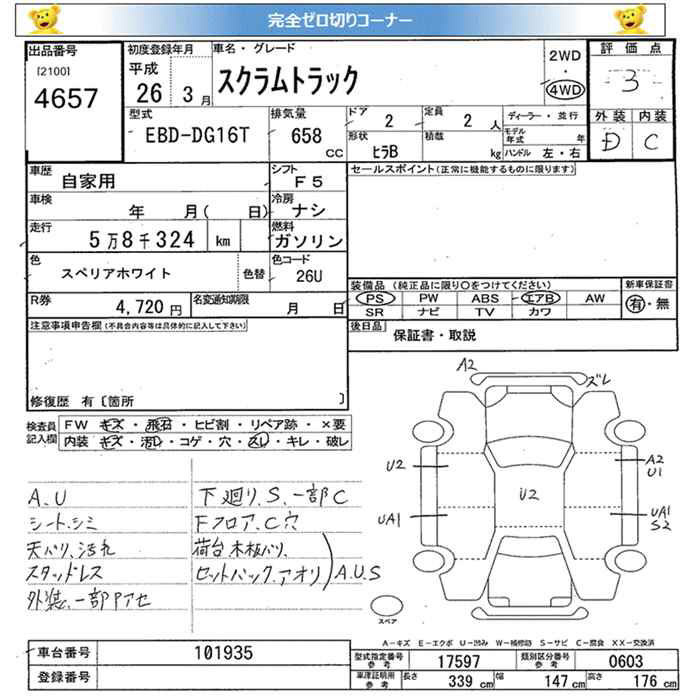 完全ゼロ切りコーナー
出品番号
[2100]
4657
初度登録年月
平成
26 3月
車名・グレード
スクラムトラック
2WD
・
4WD
評価点
3
外装 内装
D C
型式
EBD-DG16T
排気量
658
CC
ドア
2
定員
2 人
形状
ヒラB
積載
kg
ディーラー・並行
モデル年式 年
ハンドル 左・右
車歴
自家用
シフト
F5
車検
年 月( 日)
冷房
ナシ
走行
5万8千324 km
燃料
ガソリン
色
スペリアホワイト
色替
色コード
26U
R券
4,720円
名変通知期限
月 日
セールスポイント(正常に機能するものに限ります)
装備品(純正品に限り○をつけてください)
PS PW ABS エアB AW
SR ナビ TV カワ
新車保証書
有・無
後日品
保証書・取説
注意事項申告欄(不具合内容等は具体的に記入して下さい)
修復歴 有〔箇所 〕
検査員記入欄
FW キズ・飛石・ヒビ割・リペア跡・×要
内装 キズ・汚れ・コゲ・穴・ズレ・キレ・破レ
A.U
シート、シミ
天バリ、汚れ
スタッドレス
外装、一部Pアセ
下廻り、S、一部C
Fフロア、C穴
荷台、木板バリ、
セットバック、アオリ A.U.S
A2
ズレ
U2
A2
U1
U2
UA1
UA1
S2
スペア
A-キズ E-エクボ U-凹み W-補修跡 S-サビ C-腐食 XX-交換済
車台番号
101935
登録番号
型式指定番号
参考
17597
類別区分番号
参考
0603
車津証明用
参考
長さ 339 cm 幅 147 cm 高さ 176 cm